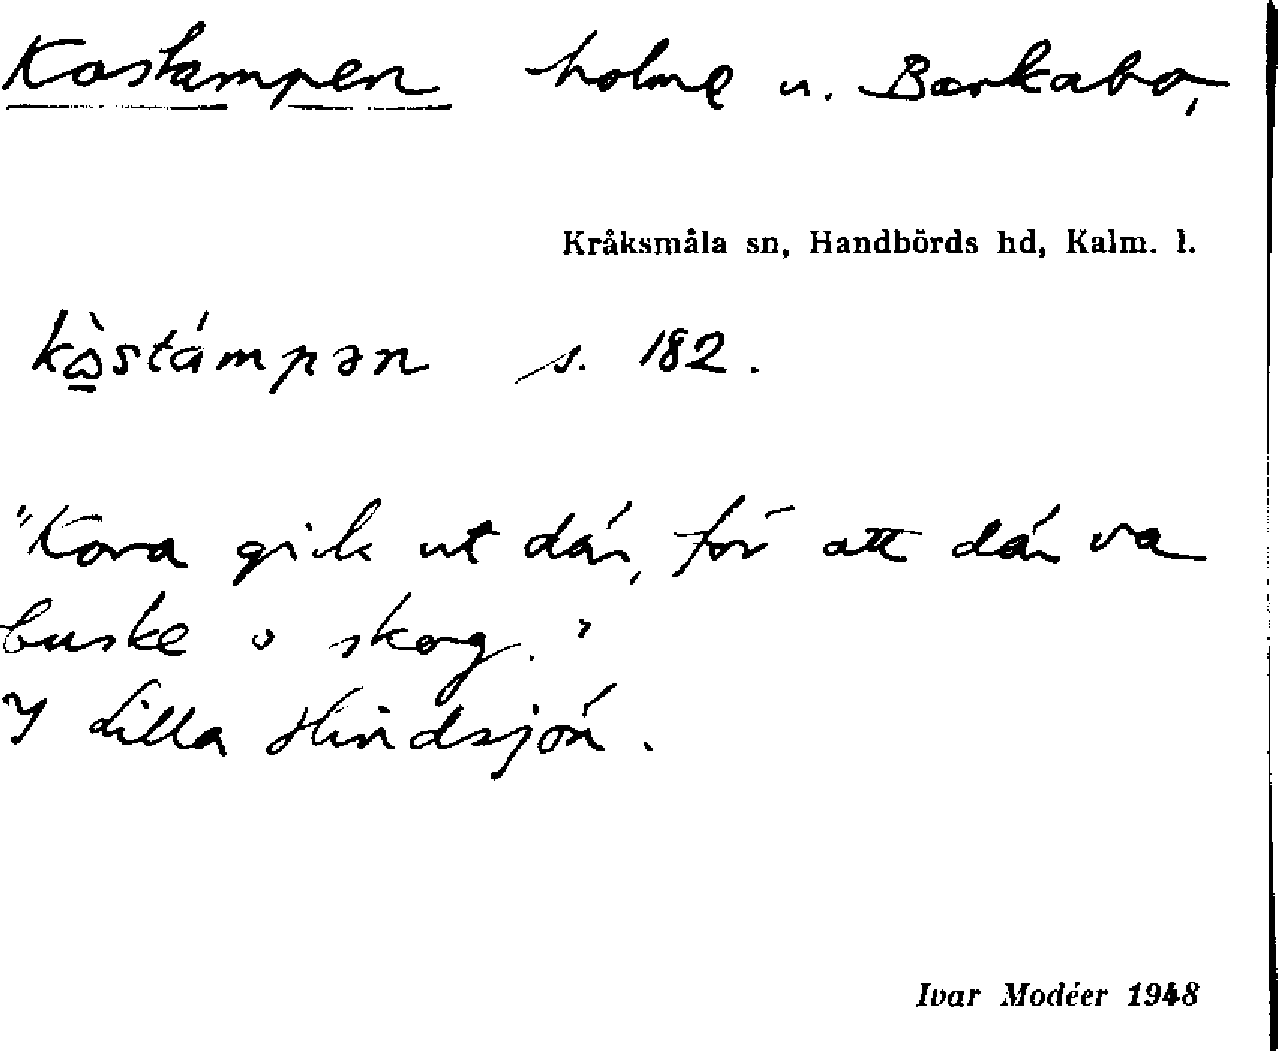 Kostampen holme u. Barkabo,
Kråksmåla sn, Handbörds hd, Kalm. l.
kòstámpən s. 182.
"Kora gick ut där, för att där va
buske o skog."
I Lilla Hindsjön.
Ivar Modéer 1948